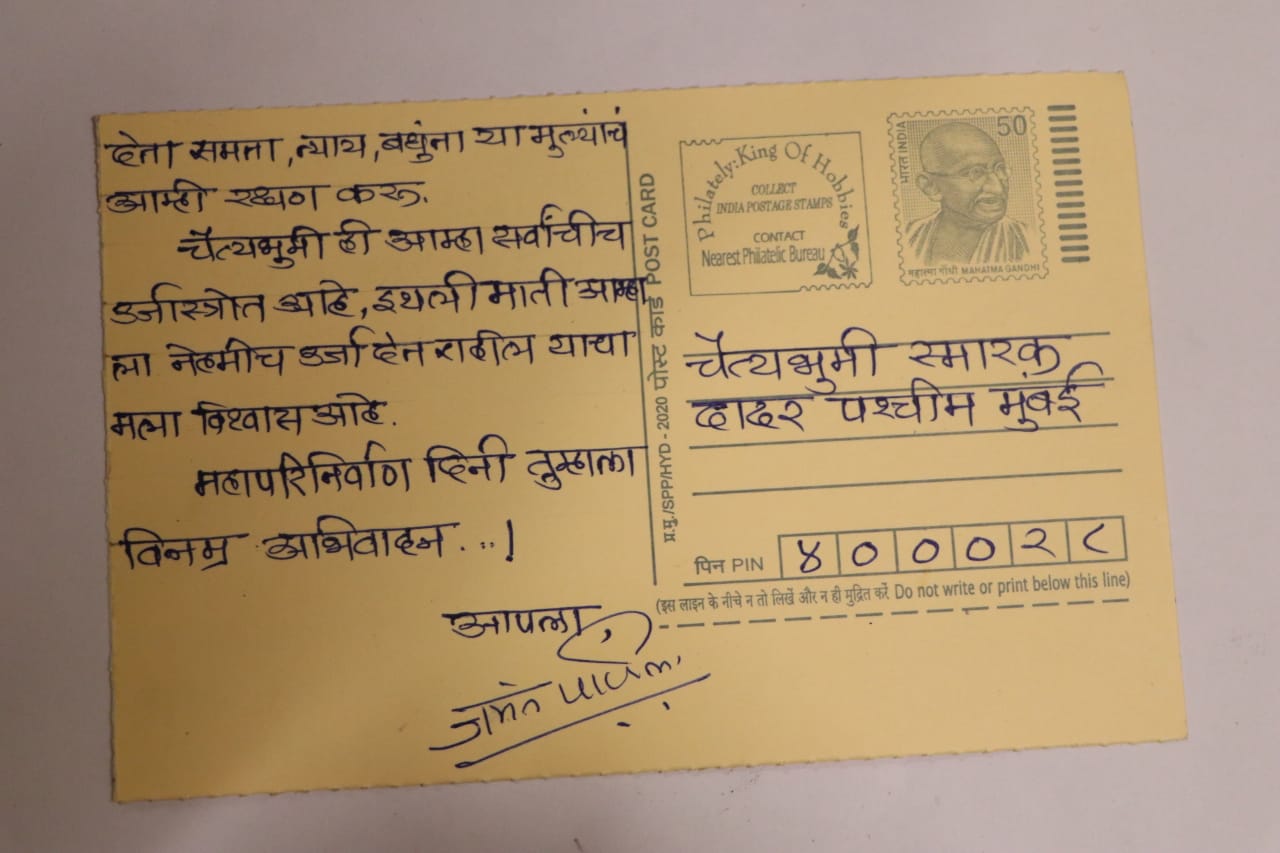 देता समता, न्याय, बधुंता या मुल्यांचं
आम्ही रक्षण करू.
चैत्यभुमी ही आम्हा सर्वांचीच
उर्जास्त्रोत आहे, इथली माती आम्हा
ला नेहमीच उर्जा देत राहील याचा
मला विश्वास आहे.
महापरिनिर्वाण दिनी तुम्हाला
विनम्र अभिवादन...!
आपला,
प्र.मु./SPP/HYD - 2020 पोस्ट कार्ड POST CARD
Philately: King Of Hobbies
COLLECT
INDIA POSTAGE STAMPS
CONTACT
Nearest Philatelic Bureau
भारत INDIA
50
महात्मा गाँधी MAHATMA GANDHI
चैत्यभुमी स्मारक
दादर पश्चीम मुंबई
पिन PIN ४०००२८
(इस लाइन के नीचे न तो लिखें और न ही मुद्रित करें Do not write or print below this line)